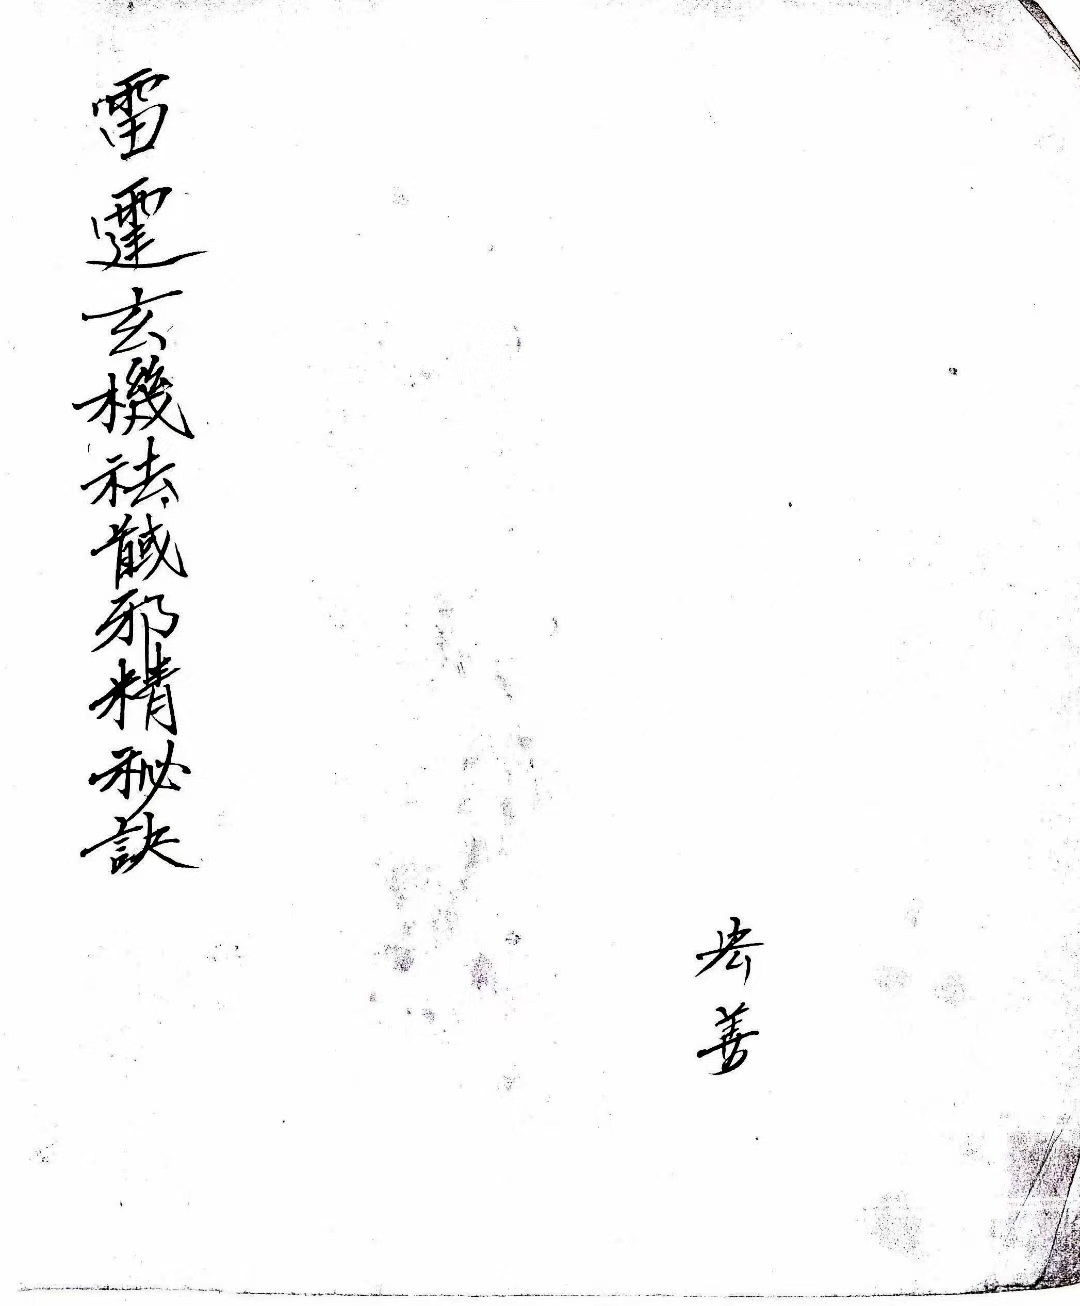 雷霆玄機祛馘邪精秘訣
宏善